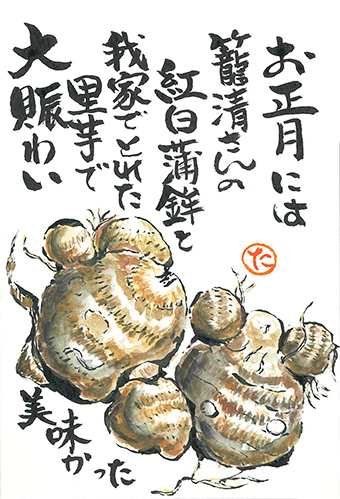 お正月には
籠清さんの
紅白蒲鉾と
我家でとれた
里芋で
大賑わい
た
美味かった